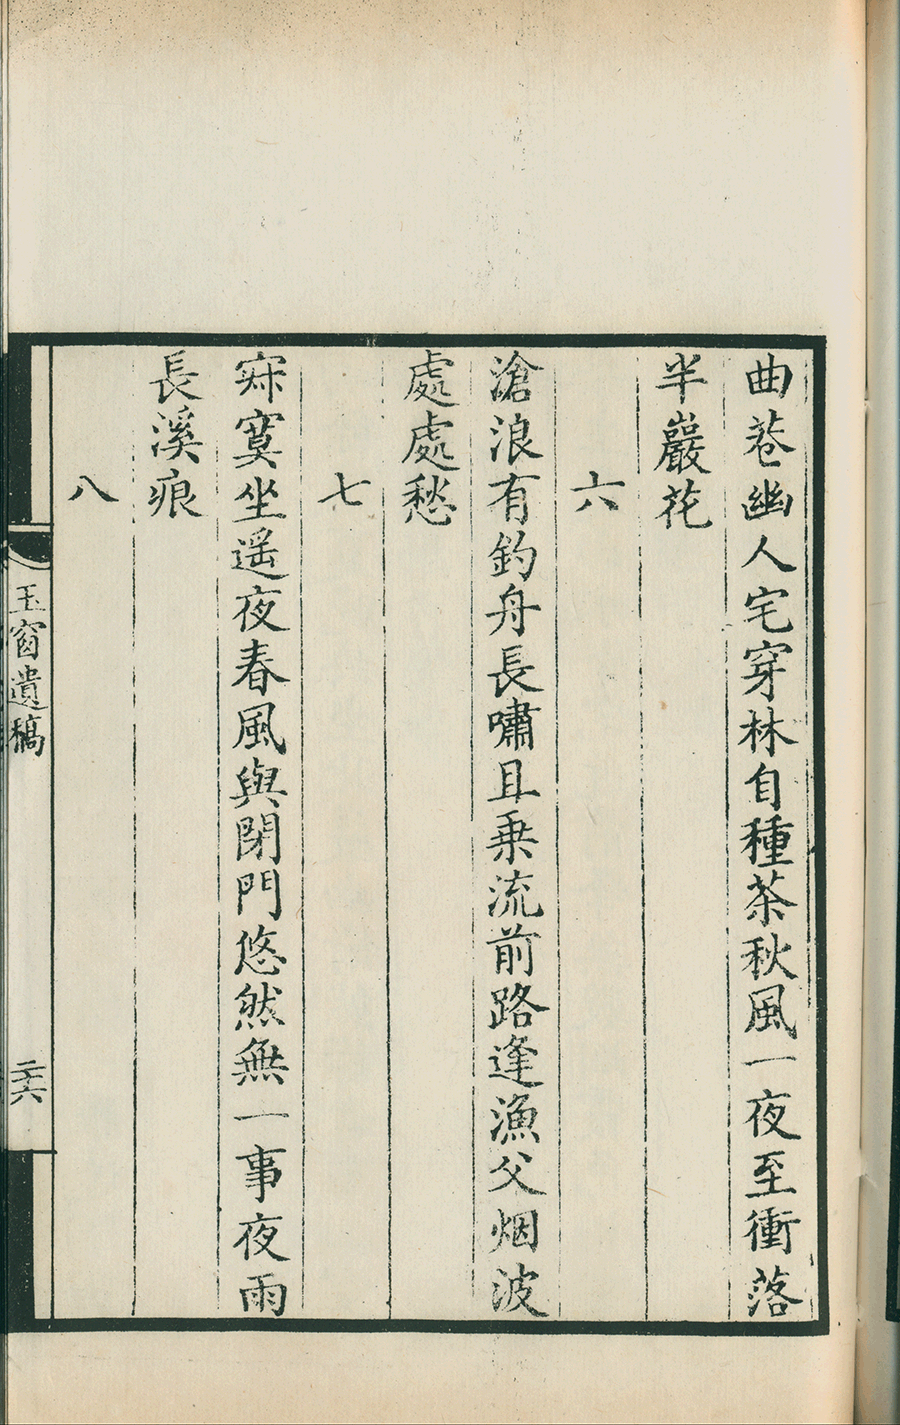 曲巷幽人宅穿林自種茶秋風一夜至衝落
半巖花
六
滄浪有釣舟長嘯且乗流前路逢漁父烟波
處處愁
七
寂寞坐遥夜春風與閉門悠然無一事夜雨
長溪痕
八
玉窗遺稿
二十六